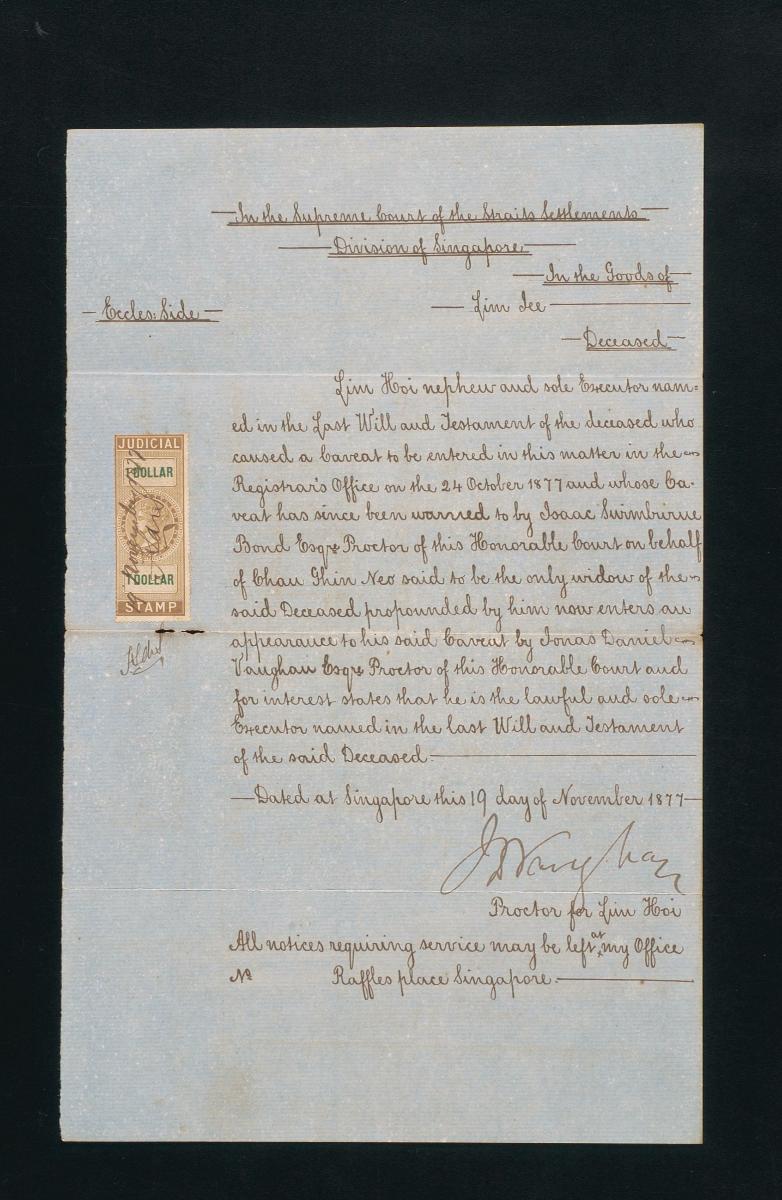 In the Supreme Court of the Straits Settlements
Division of Singapore
In the Goods of
Eccles: Side
Lim Tee
Deceased
Lim Hoi nephew and sole Executor nam=
ed in the Last Will and Testament of the deceased who
caused a Caveat to be entered in this matter in the
Registrar's Office on the 24 October 1877 and whose Ca-
veat has since been warned to by Isaac Swinburne
Bond Esqre Proctor of this Honorable Court on behalf
of Chau Ghin Neo said to be the only widow of the
said Deceased propounded by him now enters an
appearance to his said Caveat by Jonas Daniel
Vaughan Esqre Proctor of this Honorable Court and
for interest states that he is the lawful and sole
Executor named in the last Will and Testament
of the said Deceased.
Dated at Singapore this 19 day of November 1877
J D Vaughan
Proctor for Lim Hoi
All notices requiring service may be left at my Office
No Raffles place Singapore.
JUDICIAL
1 DOLLAR
19 November 1877
1 DOLLAR
STAMP